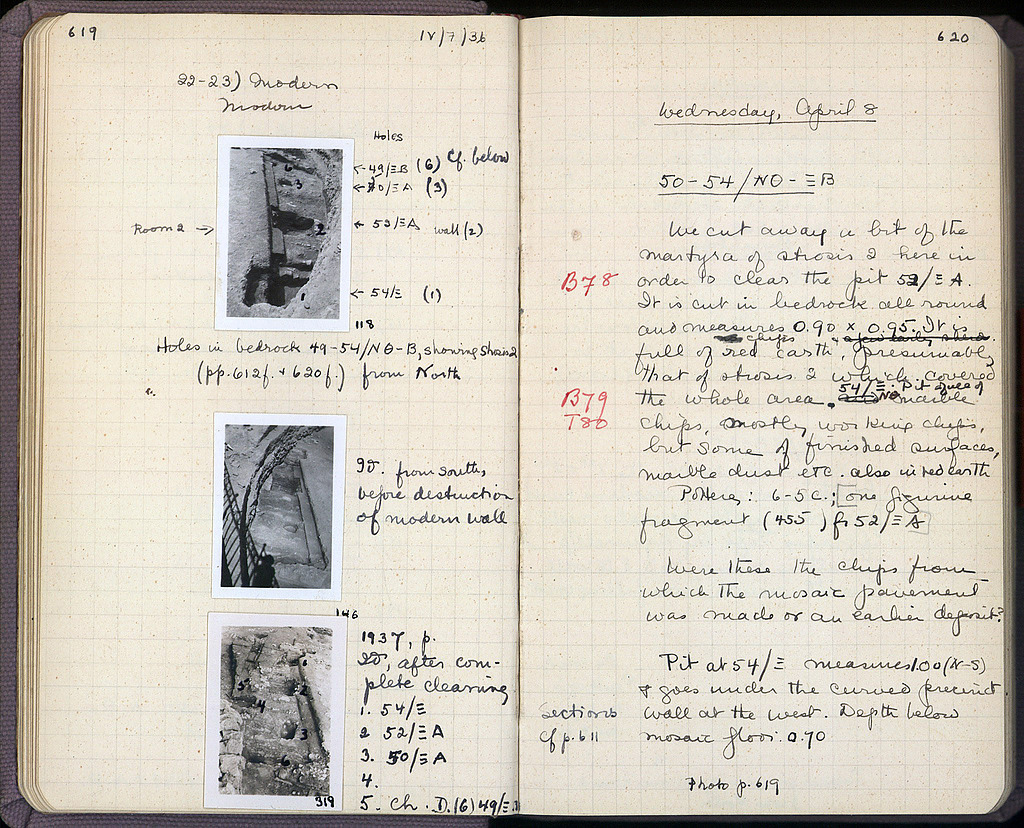 619
IV/7/36
22-23) Modern
Modern
Holes
← 49/ΞB (6) Cf. below
← 50/ΞA (3)
Room 2 →
← 52/ΞA wall (2)
← 54/Ξ (1)
6
3
2
1
118
Holes in bedrock 49-54/NΘ-B, showing strosis 2
(pp. 612f. + 620f.) from North
Id. from south,
before destruction
of modern wall
146
1937, p.
Id, after com-
plete cleaning
1. 54/Ξ
2 52/ΞA
3. 50/ΞA
4.
5. Ch. D. (6) 49/Ξ
5
4
2
3
6
319
620
Wednesday, April 8
50-54/NΘ-ΞB
We cut away a bit of the
martyra of strosis 2 here in
B78
order to clear the pit 52/ΞA.
It is cut in bedrock all round
and measures 0.90 x 0.95. It is
full of red earth, presumably
that of strosis 2 which covered
B79
the whole area. 54/Ξ: Pit full of marble
T80
chips, mostly working chips,
but some of finished surfaces,
marble dust etc. also in red earth
Pottery: 6-5 c.; one figurine
fragment (455) fr 52/ΞA
Were these the chips from
which the mosaic pavement
was made or an earlier deposit?
Pit at 54/Ξ measures 1.00 (N-S)
& goes under the curved precinct
Sections
wall at the west. Depth below
cf p. 611
mosaic floor: 0.70
Photo p. 619